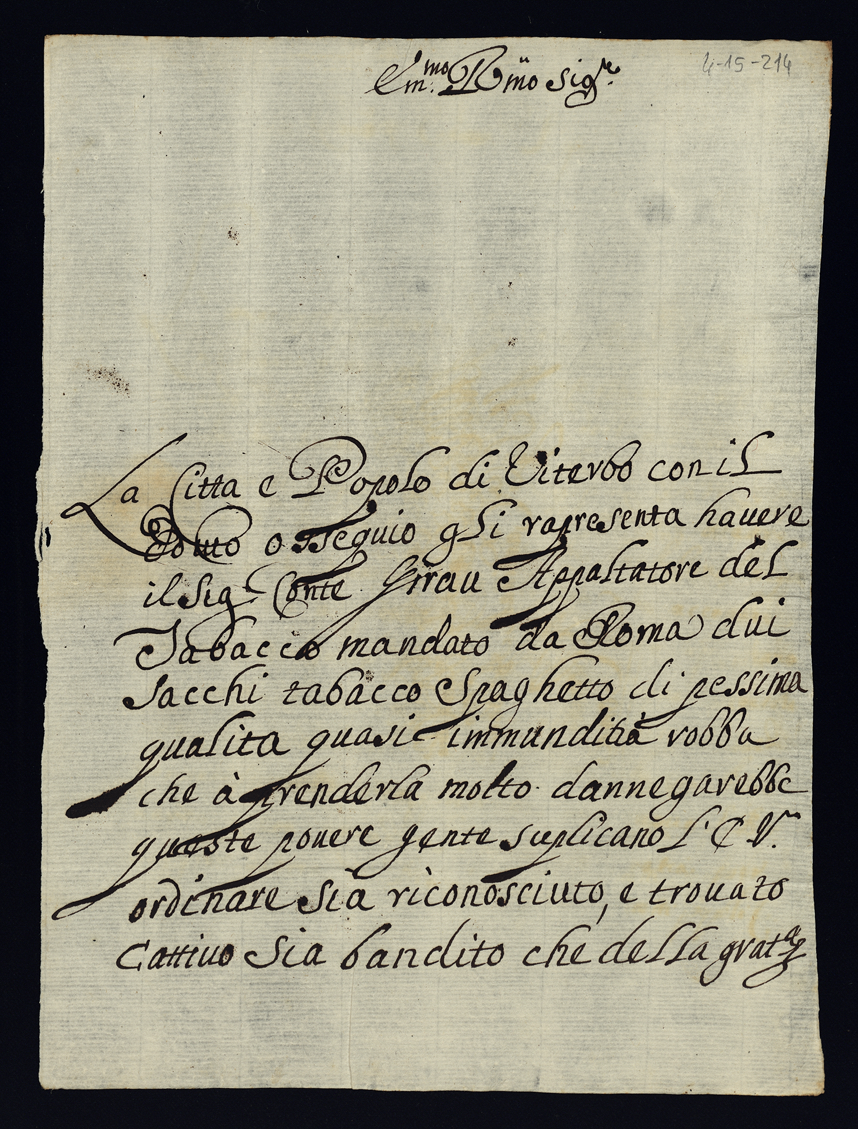 4-15-214
Em.mo R.mo Sig.re
La Citta e Popolo di Viterbo con il
douto ossequio gli rapresenta havere
il Sig.r Conte Appaltatore del
Tabacco mandato da Roma dui
sacchi tabacco Spaghetto di pessima
qualita quasi immunditia robba
che à prenderla molto dannegarebbe
queste povere gente suplicano L'E V.ra
ordinare sia riconosciuto, e trovato
Cattivo Sia bandito che della grat.a